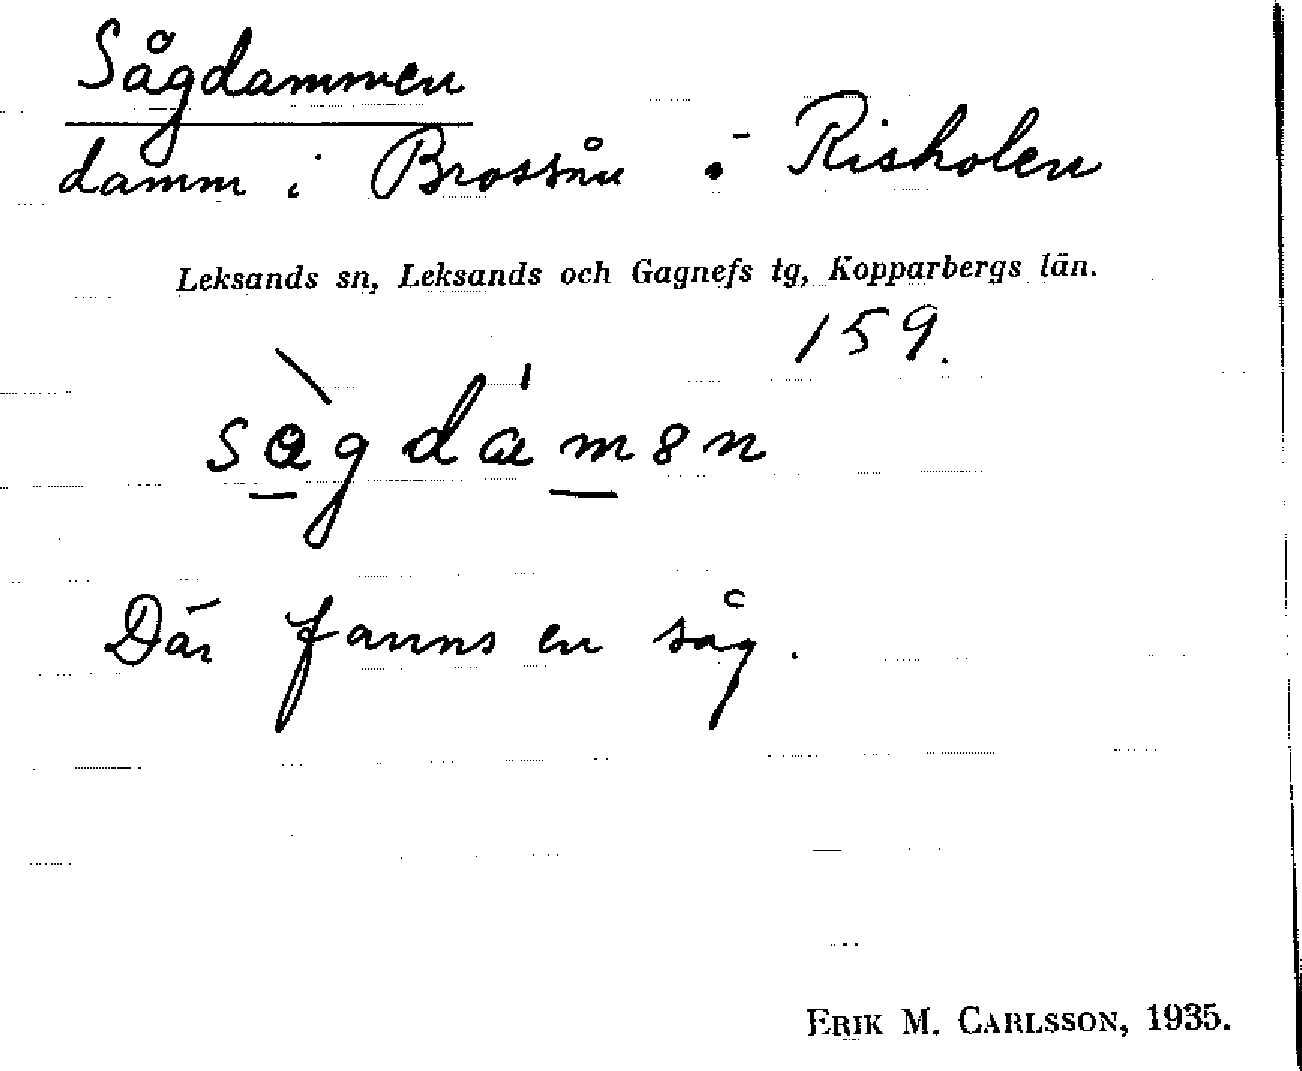 Sågdammen
damm i Brossån i Risholen
Leksands sn, Leksands och Gagnefs tg, Kopparbergs län.
159.
Där fanns en såg.
ERIK M. CARLSSON, 1935.